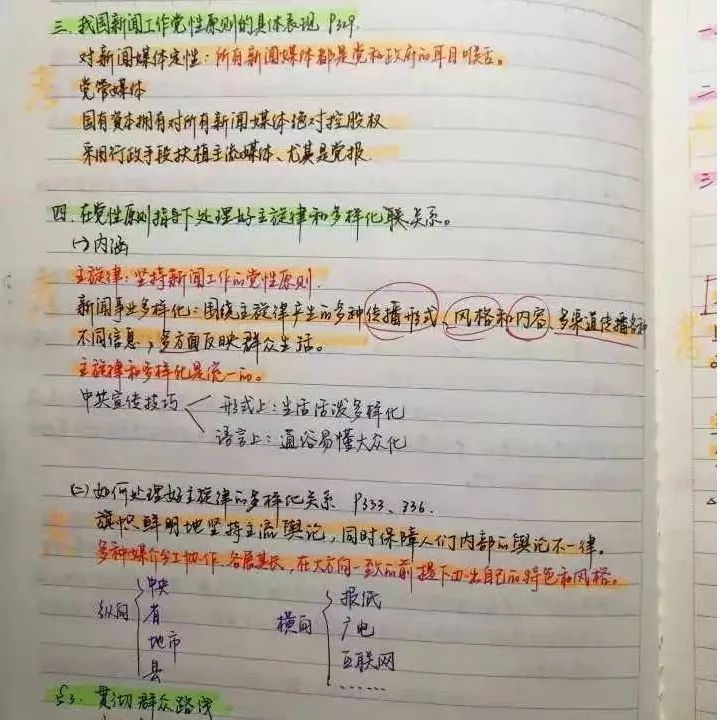 三. 我国新闻工作党性原则的具体表现 P329.
对新闻媒体定性：所有新闻媒体都是党和政府的耳目喉舌。
考
党管媒体
国有资本拥有对所有新闻媒体绝对控股权
采用行政手段扶植主流媒体、尤其是党报.
四. 在党性原则指导下处理好主旋律和多样化联关系。
(一)内涵
主旋律：坚持新闻工作的党性原则.
新闻事业多样化：围绕主旋律产生的多种传播形式、风格和内容、多渠道传播各种
不同信息，多方面反映群众生活。
主旋律和多样化是统一的。
中共宣传技巧 形式上：生活活泼多样化
语言上：通俗易懂大众化
(二)如何处理好主旋律的多样化关系 P333、336.
旗帜鲜明地坚持主流舆论，同时保障人们内部的舆论不一律。
考
多种媒介分工协作、各展其长，在大方向一致的前提下办出自己的特色和风格。
纵向 中央 省 地市 县
横向 报纸 广电 互联网 ……
§3. 贯彻群众路线
二
三